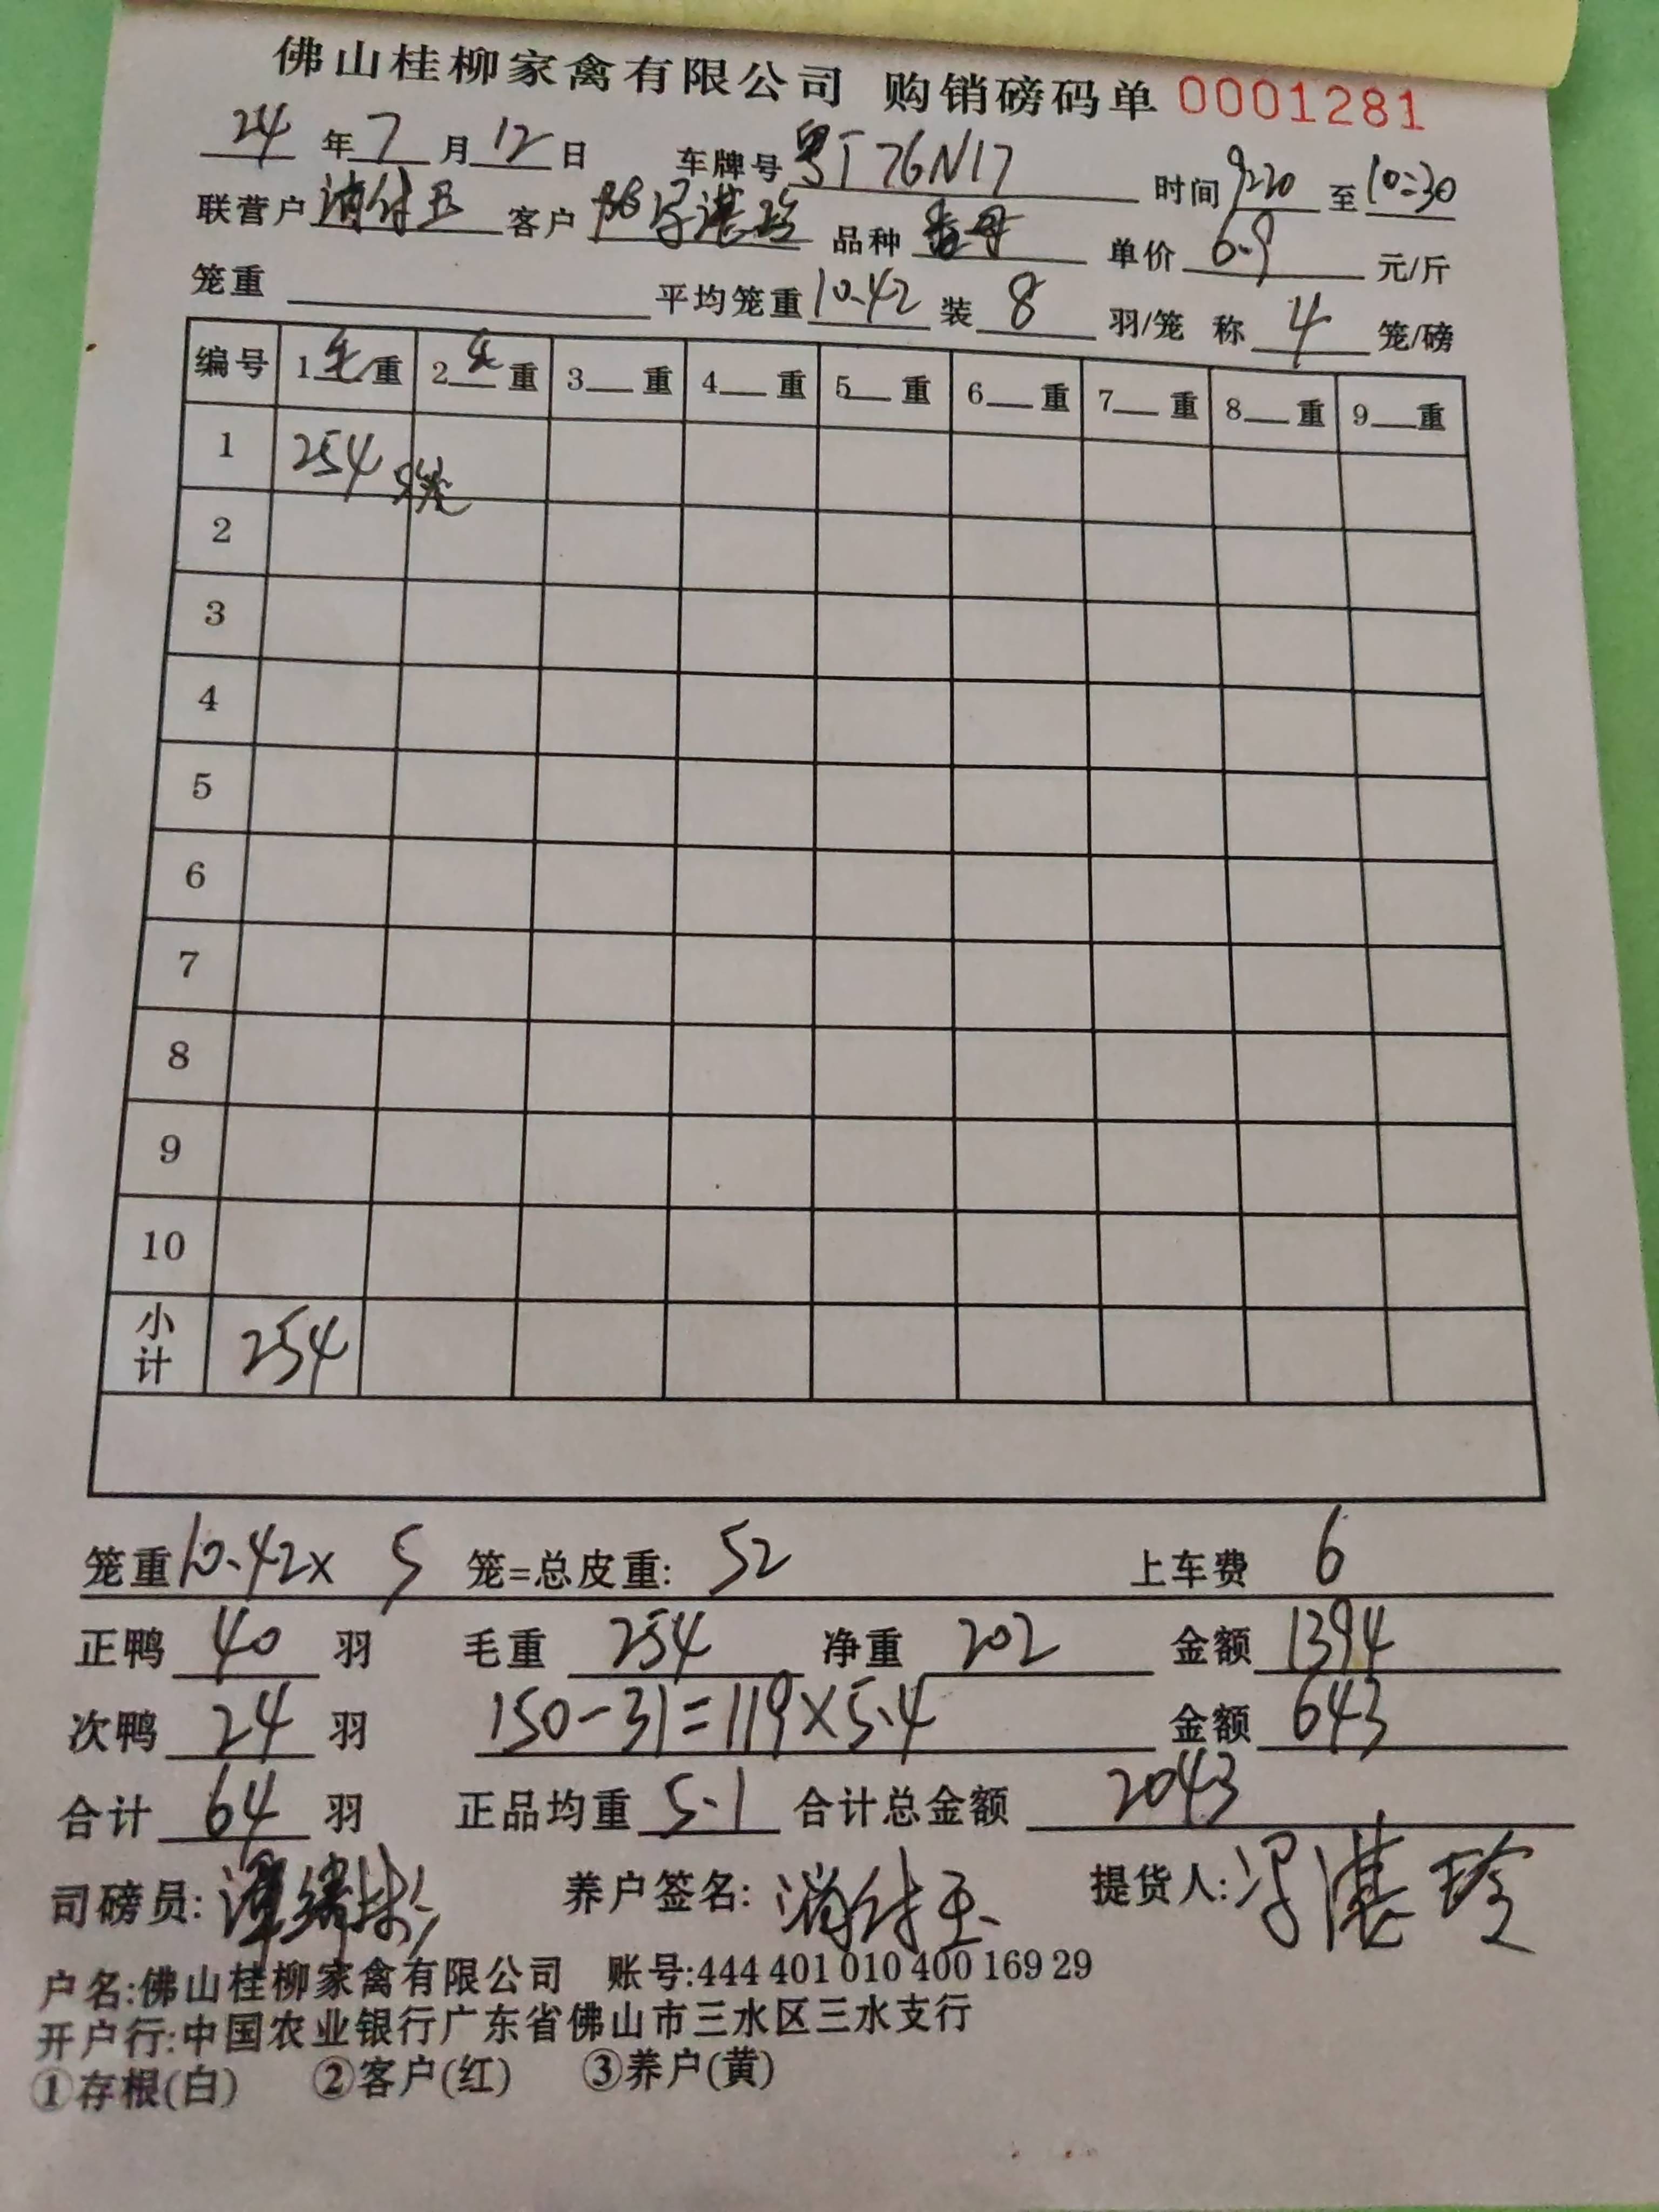 佛山桂柳家禽有限公司 购销磅码单 0001281
24 年 7 月 12 日 车牌号 粤T76N17 时间 9:20 至 10:30
联营户 客户 冯湛玲 品种 单价 6.9 元/斤
笼重 平均笼重 10.42 装 8 羽/笼 称 4 笼/磅
编号 1 毛 重 2 毛 重 3 重 4 重 5 重 6 重 7 重 8 重 9 重
1 254 5笼
2
3
4
5
6
7
8
9
10
小计 254
笼重 10.42 x 5 笼=总皮重: 52 上车费 6
正鸭 40 羽 毛重 254 净重 202 金额 1394
次鸭 24 羽 150-31=119×5.4 金额 643
合计 64 羽 正品均重 5.1 合计总金额 2043
司磅员: 养户签名: 提货人: 冯湛玲
户名:佛山桂柳家禽有限公司 账号:444 401 010 400 169 29
开户行:中国农业银行广东省佛山市三水区三水支行
①存根(白) ②客户(红) ③养户(黄)